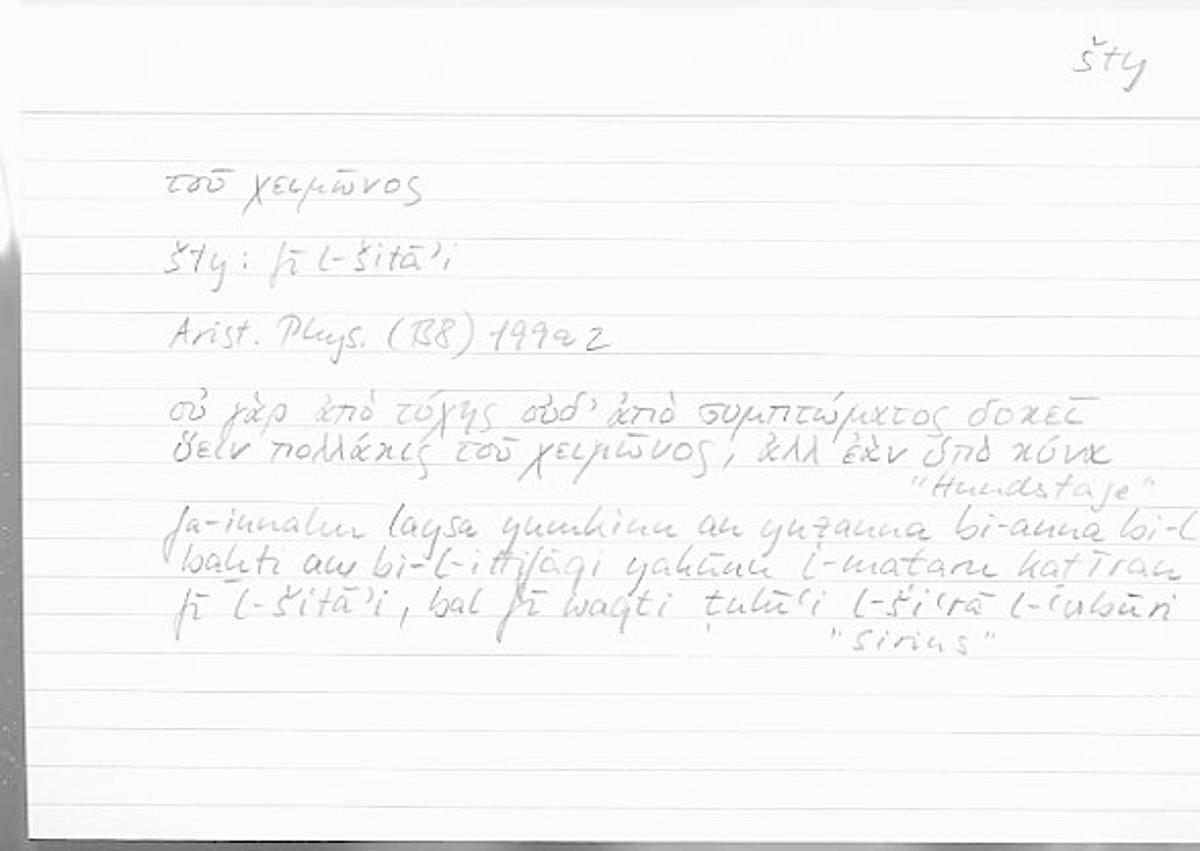 šty
τοῦ χειμῶνος
šty: fī l-šitāʾi
Arist. Phys. (B8) 199a2
οὐ γὰρ ἀπὸ τύχης οὐδ' ἀπὸ συμπτώματος δοκεῖ
ὕειν πολλάκις τοῦ χειμῶνος, ἀλλ ἐὰν ὑπὸ κύνα
"Hundstage"
fa-innahu laysa yumkinu an yuẓanna bi-anna bi-l
bahti aw bi-l-ittifāqi yakūnu l-maṭaru kaṯīran
fī l-šitāʾi, bal fī waqti ṭulūʿi l-šiʿrā l-ʿubūri
"Sirius"